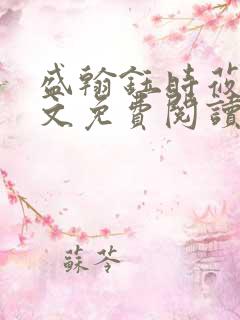 盛翰鈺時莜
文免費閱讀
蘇苓